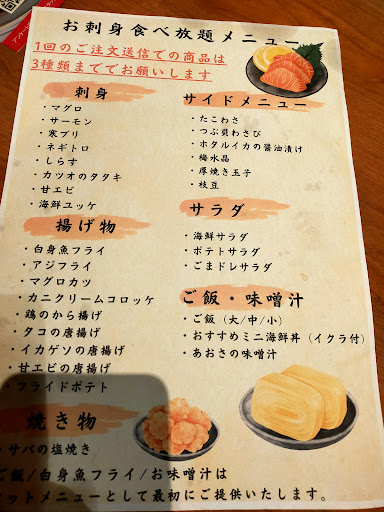 お刺身食べ放題メニュー
1回のご注文送信での商品は
3種類まででお願いします
刺身
・マグロ
・サーモン
・寒ブリ
・ネギトロ
・しらす
・カツオのタタキ
・甘エビ
・海鮮ユッケ
揚げ物
・白身魚フライ
・アジフライ
・マグロカツ
・カニクリームコロッケ
・鶏のから揚げ
・タコの唐揚げ
・イカゲソの唐揚げ
・甘エビの唐揚げ
・フライドポテト
焼き物
・サバの塩焼き
サイドメニュー
・たこわさ
・つぶ貝わさび
・ホタルイカの醤油漬け
・梅水晶
・厚焼き玉子
・枝豆
サラダ
・海鮮サラダ
・ポテトサラダ
・ごまドレサラダ
ご飯・味噌汁
・ご飯(大/中/小)
・おすすめミニ海鮮丼(イクラ付)
・あおさの味噌汁
ご飯/白身魚フライ/お味噌汁は
セットメニューとして最初にご提供いたします。